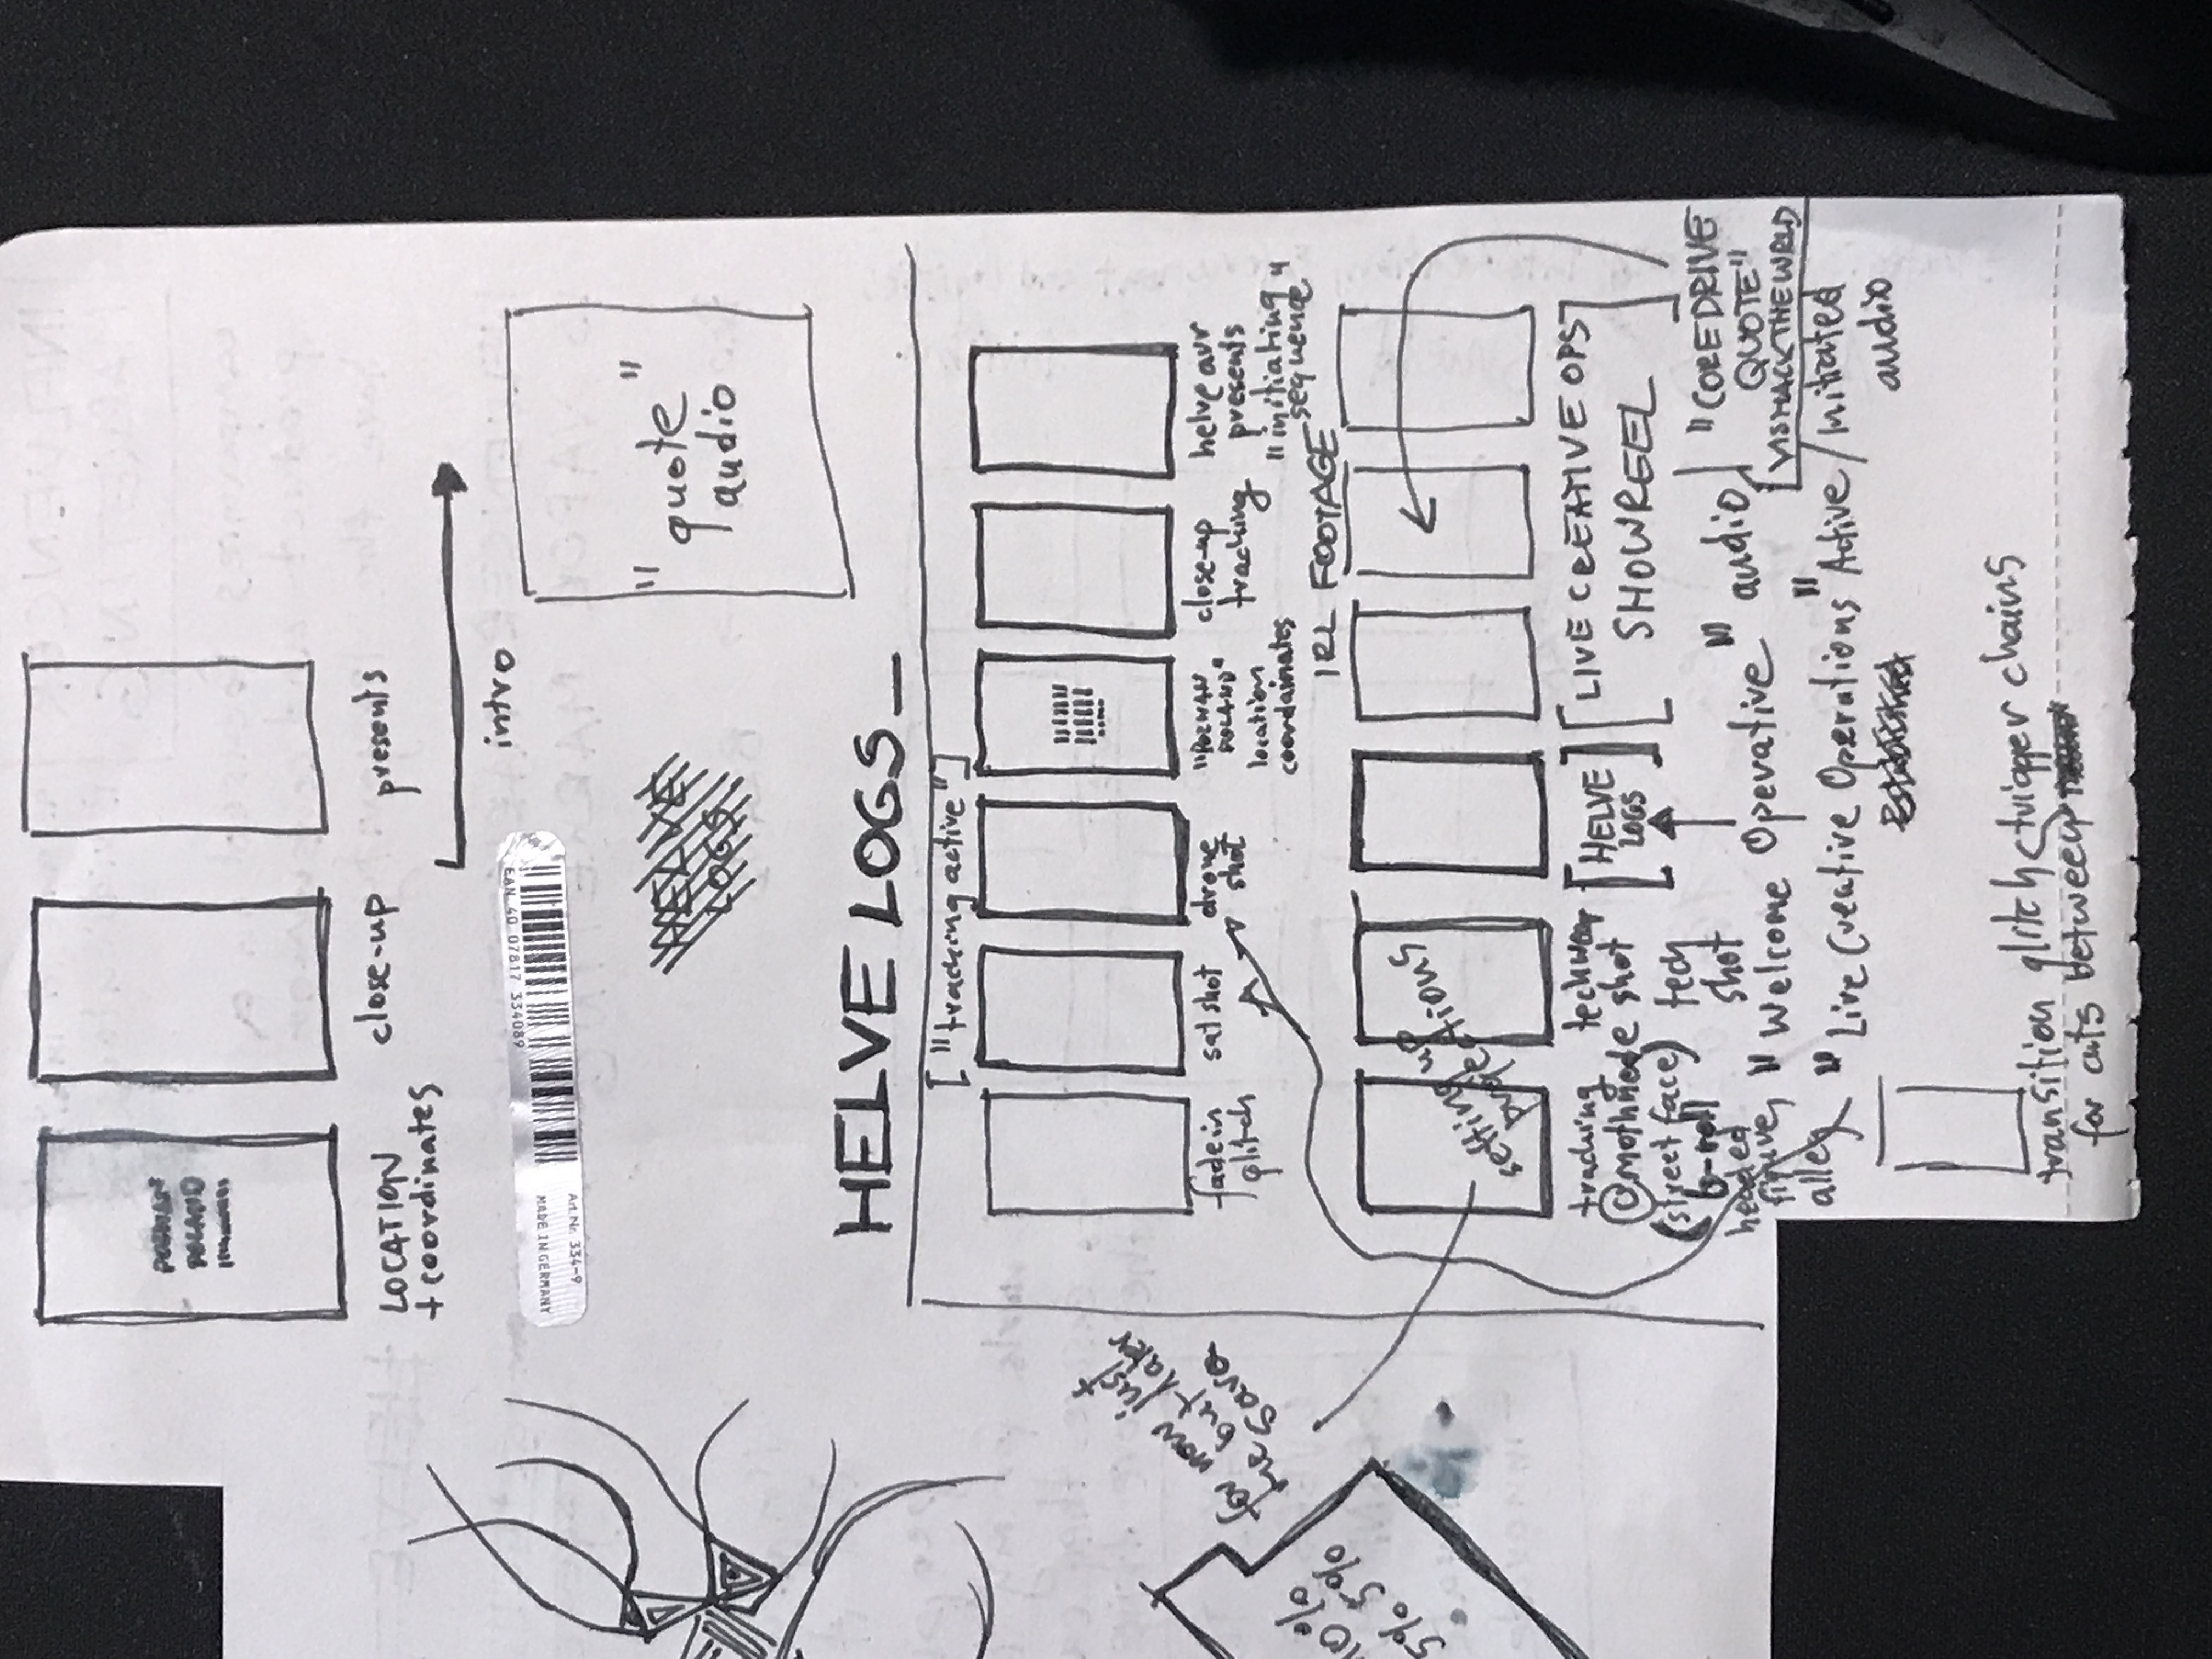 POZNAN
POLAND
LOCATION
+ coordinates
close-up
presents
intro
EAN 40 07817 334089
MADE IN GERMANY
Art.Nr. 334-9
HELVE
LOGS
" quote "
audio
HELVE LOGS_
["tracking active"]
fade in
glitch
sat shot
drone
shot
"POZNAN
POLAND"
location
coordainates
close-up
tracking
helve avr
presents
"initiating
sequence"
for now just
me but later
Sara
10%
5% 5%
5%
IRL FOOTAGE
setting up
projections
tracking
@mothnode
(street face)
b-roll
headed
figure,
alley
techwear
shot
tech
shot
[HELVE
LOGS]
[LIVE CREATIVE OPS
SHOWREEL]
"Welcome Operative" audio
"COREDRIVE
QUOTE"
"Live Creative Operations" Active / Initiated
audio
Established
transition glitch trigger chains
for cuts between